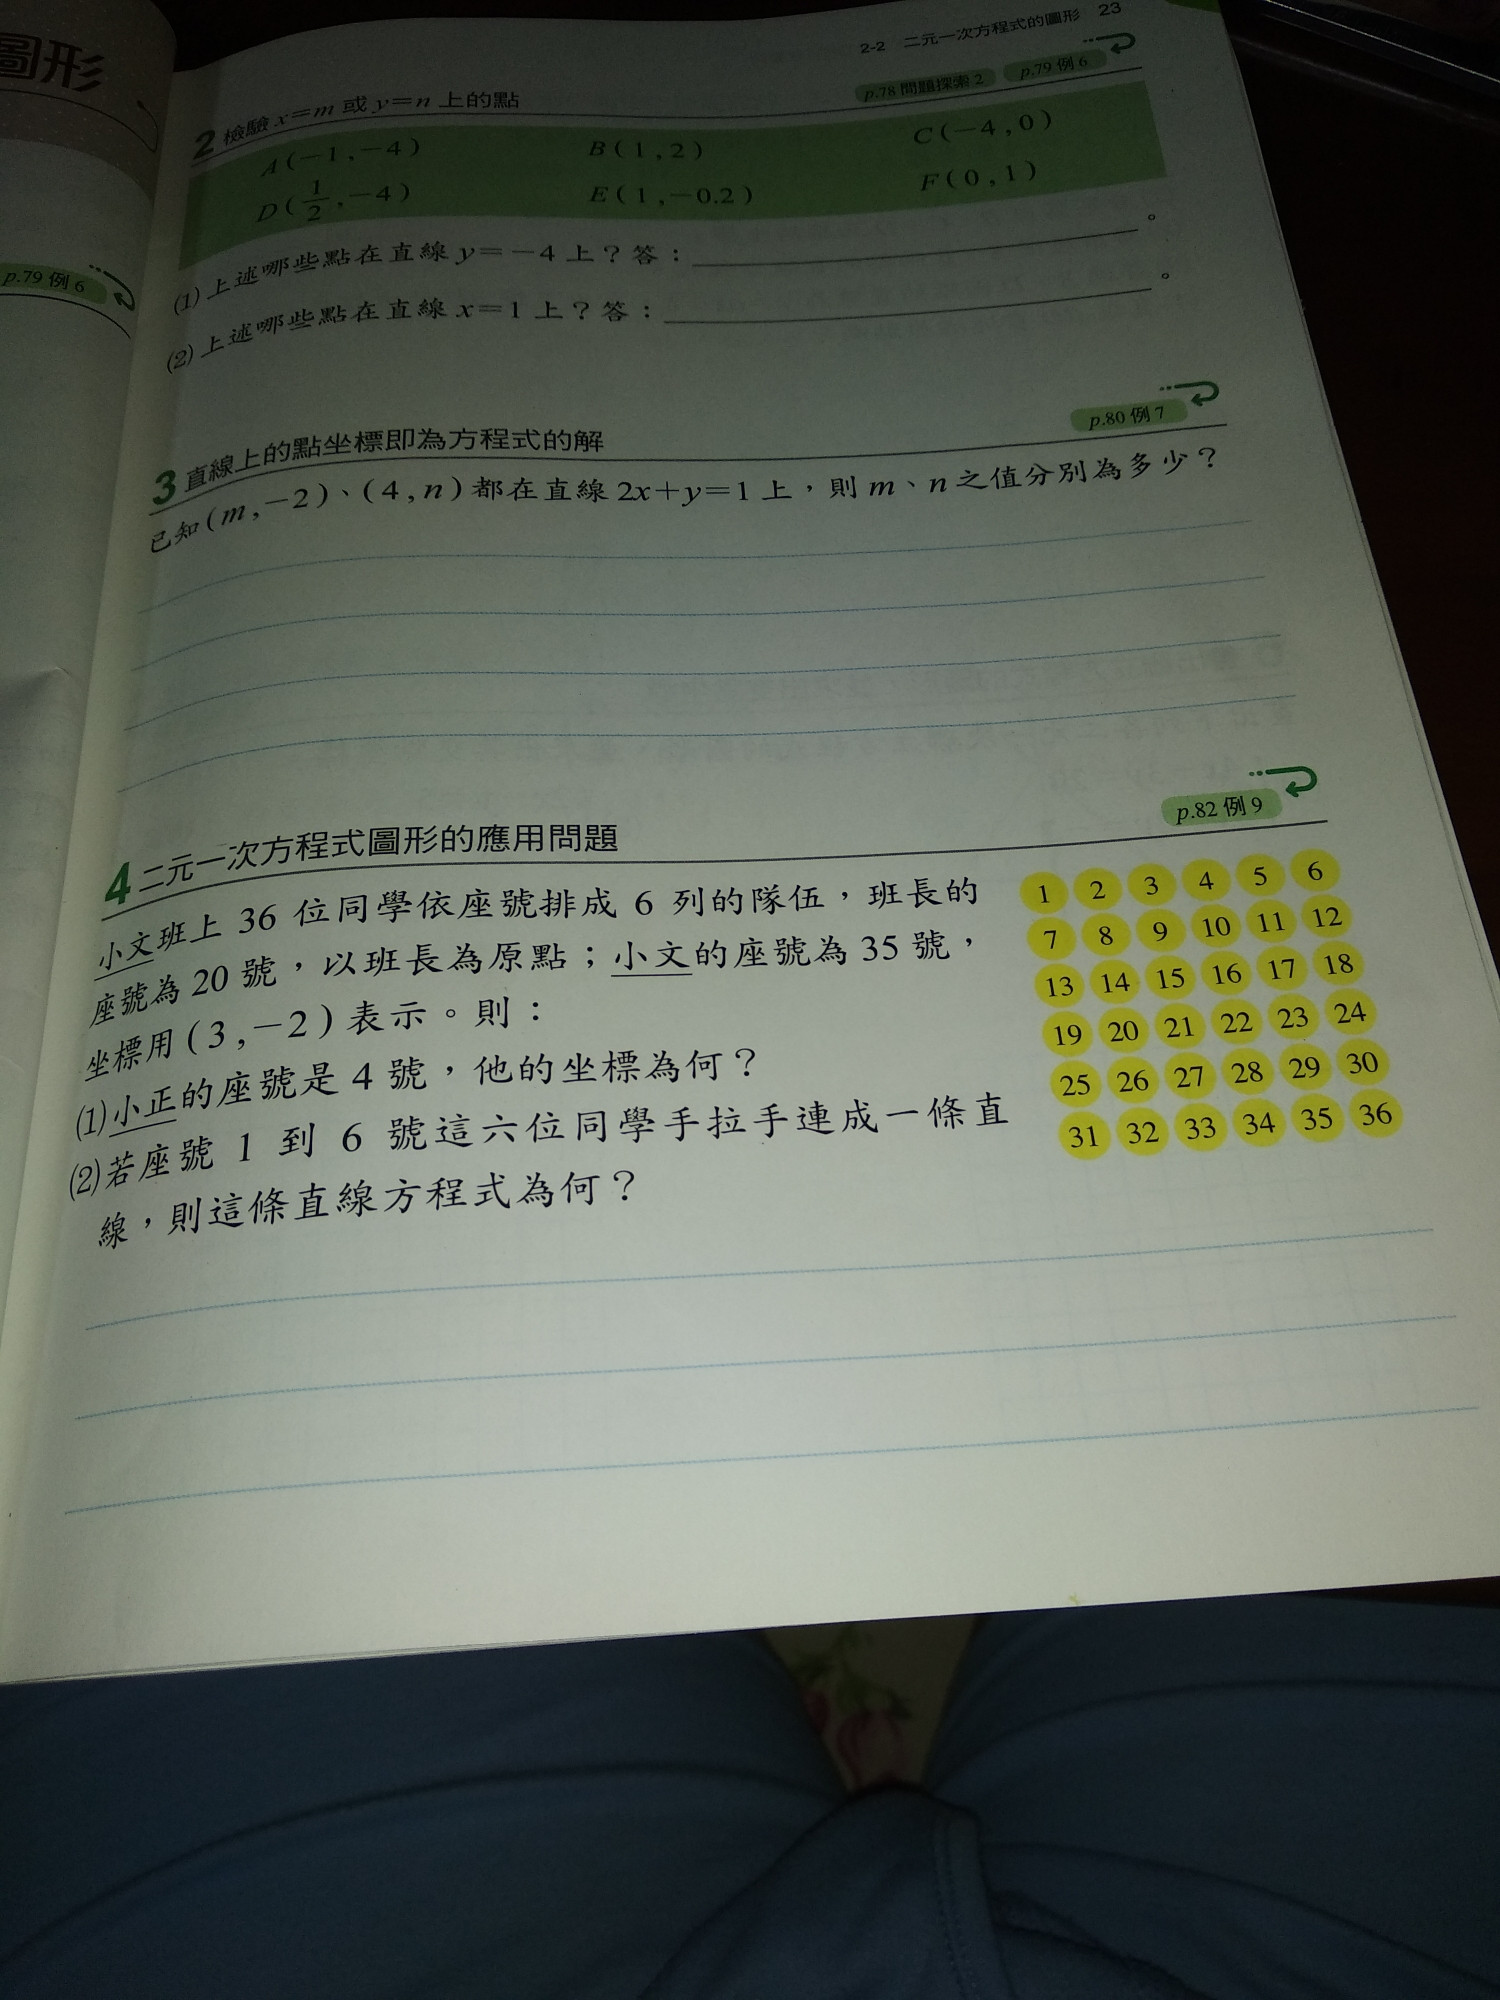 圖形
p.79 例 6
2-2 二元一次方程式的圖形 23
2 檢驗 x=m 或 y=n 上的點 p.78 問題探索 2 p.79 例 6
A(-1,-4) B(1,2) C(-4,0)
D(1/2,-4) E(1,-0.2) F(0,1)
(1)上述哪些點在直線 y=-4 上?答:。
(2)上述哪些點在直線 x=1 上?答:。
3 直線上的點坐標即為方程式的解 p.80 例 7
已知(m,-2)、(4,n)都在直線 2x+y=1 上,則 m、n 之值分別為多少?
4 二元一次方程式圖形的應用問題 p.82 例 9
小文班上 36 位同學依座號排成 6 列的隊伍,班長的
座號為 20 號,以班長為原點;小文的座號為 35 號,
坐標用(3,-2)表示。則:
(1)小正的座號是 4 號,他的坐標為何?
(2)若座號 1 到 6 號這六位同學手拉手連成一條直
線,則這條直線方程式為何?
1 2 3 4 5 6
7 8 9 10 11 12
13 14 15 16 17 18
19 20 21 22 23 24
25 26 27 28 29 30
31 32 33 34 35 36